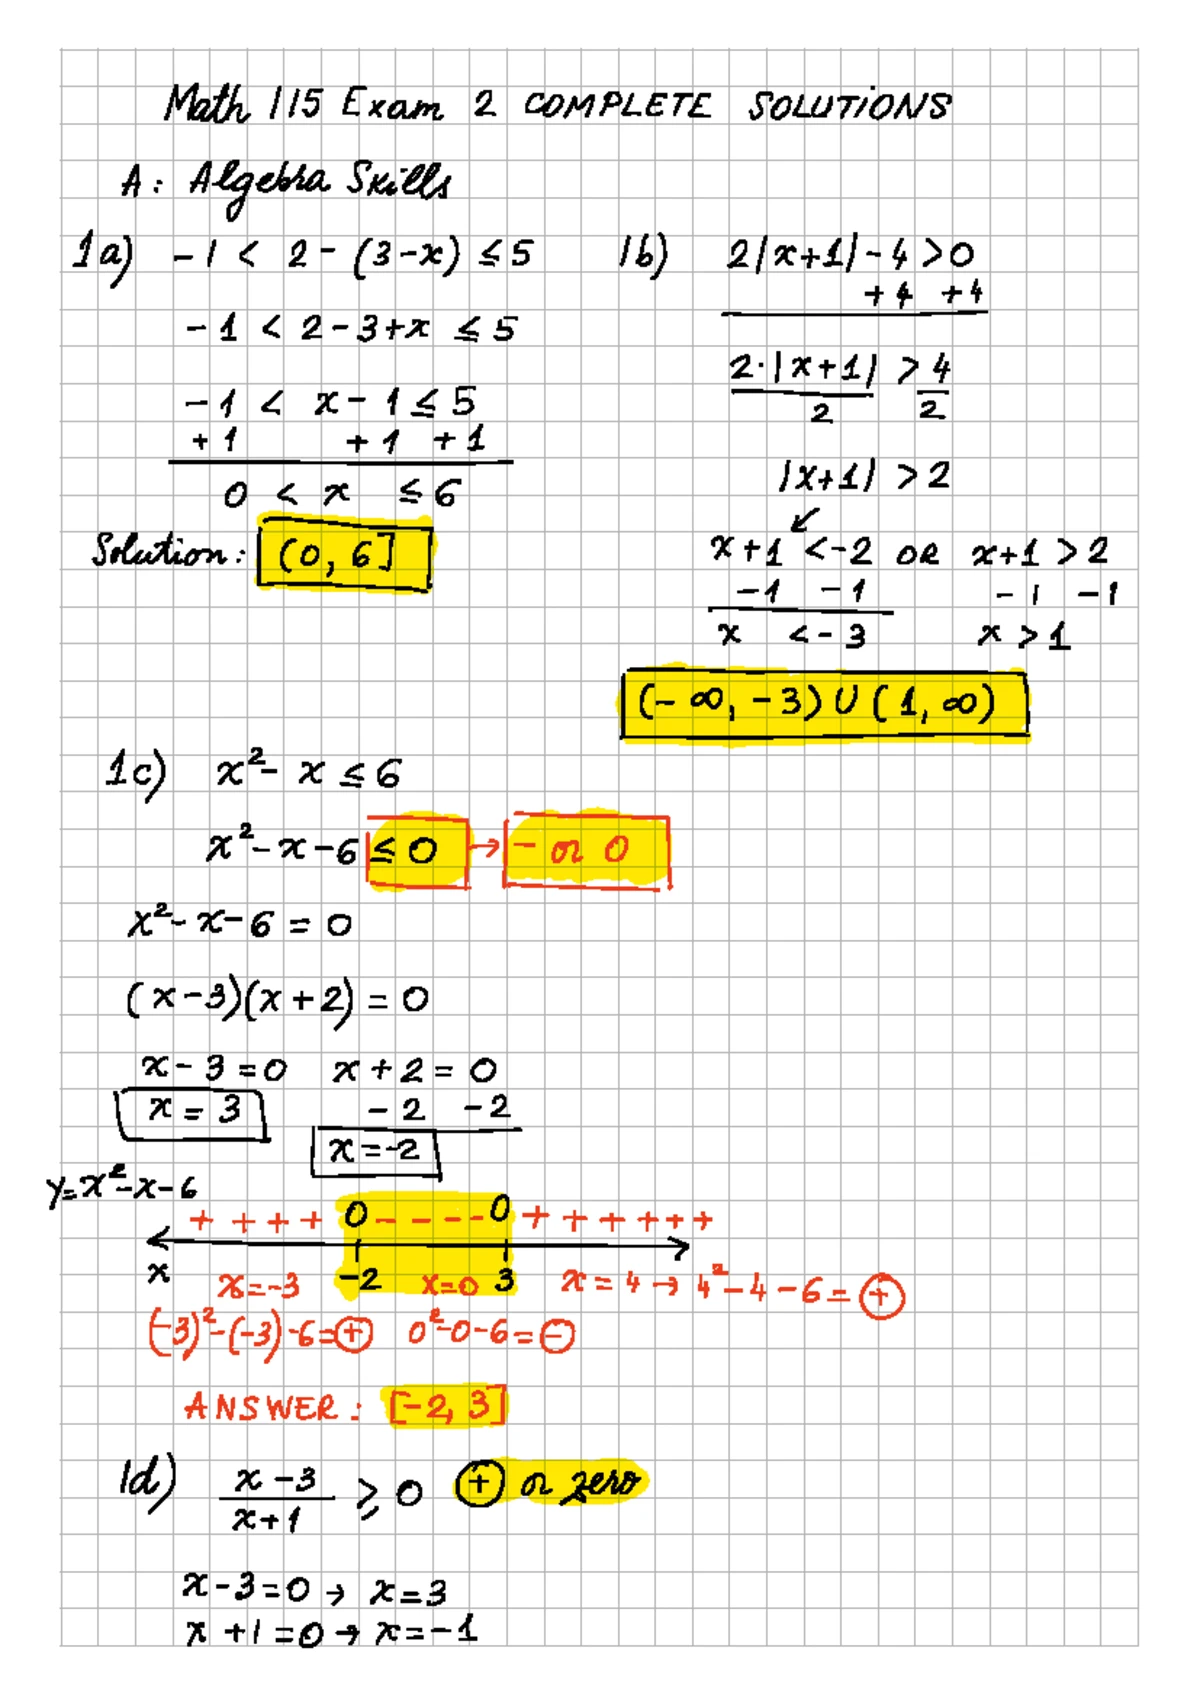 Math 115 Exam 2 COMPLETE SOLUTIONS
A: Algebra Skills
1a) -1 < 2 - (3-x) ≤ 5
-1 < 2-3+x ≤ 5
-1 < x-1 ≤ 5
+1 +1 +1
0 < x ≤ 6
Solution: (0, 6]
1b) 2|x+1| - 4 > 0
+4 +4
2·|x+1| > 4
2 2
|x+1| > 2
↙
x+1 < -2 OR x+1 > 2
-1 -1 -1 -1
x < -3 x > 1
(-∞, -3) ∪ (1, ∞)
1c) x² - x ≤ 6
x² - x - 6 ≤ 0 → - or 0
x² - x - 6 = 0
(x-3)(x+2) = 0
x - 3 = 0 x + 2 = 0
x = 3 -2 -2
x = -2
y = x² - x - 6
+ + + + 0 - - - - 0 + + + + + +
x x=-3 -2 x=0 3 x = 4 → 4² - 4 - 6 = +
(-3)² - (-3) - 6 = + 0² - 0 - 6 = -
ANSWER: [-2, 3]
1d) x - 3 ≥ 0 + or zero
x + 1
x - 3 = 0 → x = 3
x + 1 = 0 → x = -1